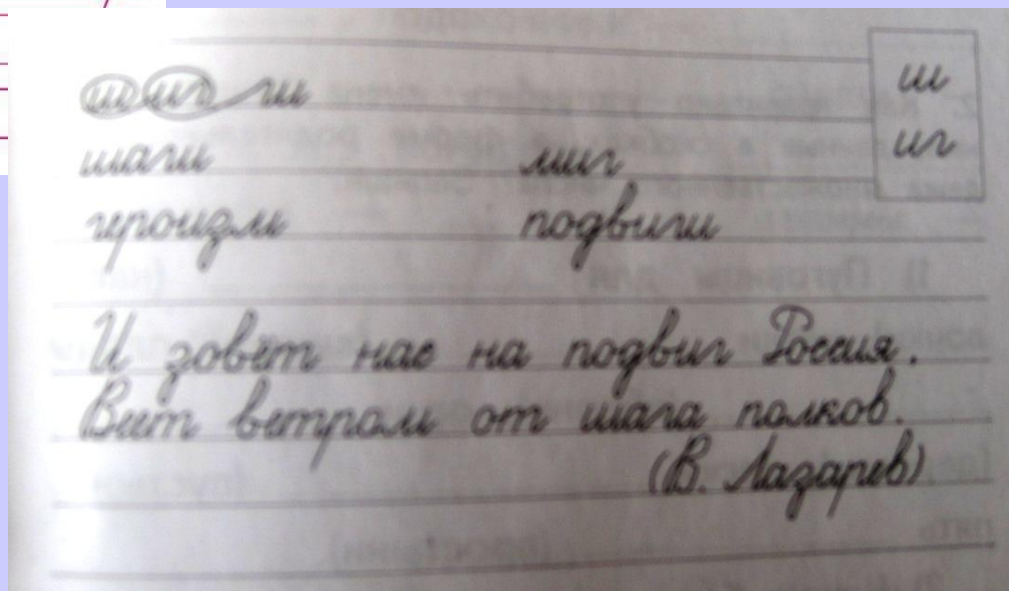 ш иг ги
ш
иг
шаги миг
героизм подвиги
И зовёт нас на подвиг Россия.
Веет ветром от шага полков.
(В. Лазарев)